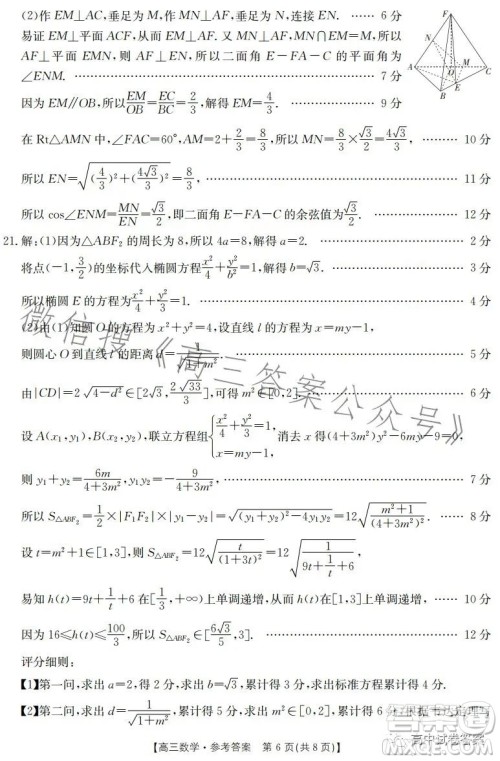 (2)作 EM⊥AC,垂足为 M,作 MN⊥AF,垂足为 N,连接 EN. …… 6 分
易证 EM⊥平面 ACF,从而 EM⊥AF. 又 MN⊥AF,MN∩EM=M,所以
AF⊥平面 EMN,而 AF⊥EN,所以二面角 E-FA-C 的平面角为
∠ENM. …… 7 分
因为 EM∥OB,所以 EM/OB=EC/BC=2/3,解得 EM=4/3. …… 9 分
在 Rt△AMN 中,∠FAC=60°,AM=2+2/3=8/3,所以 MN=8/3×√3/2=4√3/3, …… 10 分
所以 EN=√((4/3)²+(4√3/3)²)=8/3, …… 11 分
所以 cos∠ENM=MN/EN=√3/2,即二面角 E-FA-C 的余弦值为 √3/2. …… 12 分
21. 解:(1)因为△ABF₂ 的周长为 8,所以 4a=8,解得 a=2. …… 2 分
将点(-1,3/2)的坐标代入椭圆方程 x²/4+y²/b²=1,解得 b=√3. …… 3 分
所以椭圆 E 的方程为 x²/4+y²/3=1. …… 4 分
(2)由(1)知圆 O 的方程为 x²+y²=4,设直线 l 的方程为 x=my-1,
则圆心 O 到直线 l 的距离 d=1/√(1+m²). …… 5 分
由|CD|=2√(4-d²)∈[2√3,2√33/3],可得 m²∈[0,2]. …… 6 分
设 A(x₁,y₁),B(x₂,y₂),联立方程组{x²/4+y²/3=1, x=my-1, 消去 x 得(4+3m²)y²-6my-9=0,
则 y₁+y₂=6m/(4+3m²),y₁y₂=-9/(4+3m²). …… 7 分
所以 S△ABF₂=1/2×|F₁F₂|×|y₁-y₂|=√((y₁+y₂)²-4y₁y₂)=12√((m²+1)/(4+3m²)²). …… 8 分
设 t=m²+1∈[1,3],则 S△ABF₂=12√(t/(1+3t)²)=12√(1/(9t+1/t+6)).
易知 h(t)=9t+1/t+6 在[1/3,+∞)上单调递增,所以 h(t)在[1,3]上单调递增, …… 10 分
因为 16≤h(t)≤100/3,所以 S△ABF₂∈[6√3/5,3]. …… 12 分
评分细则:
【1】第一问,求出 a=2,得 2 分,求出 b=√3,累计得 3 分,求出标准方程,累计得 4 分.
【2】第二问,求出 d=1/√(1+m²),累计得 5 分,
【高三数学·参考答案 第 6 页(共 8 页)】
F
N
A
M
O
C
B
E
微信搜《高三答案公众号》
高中试卷答案